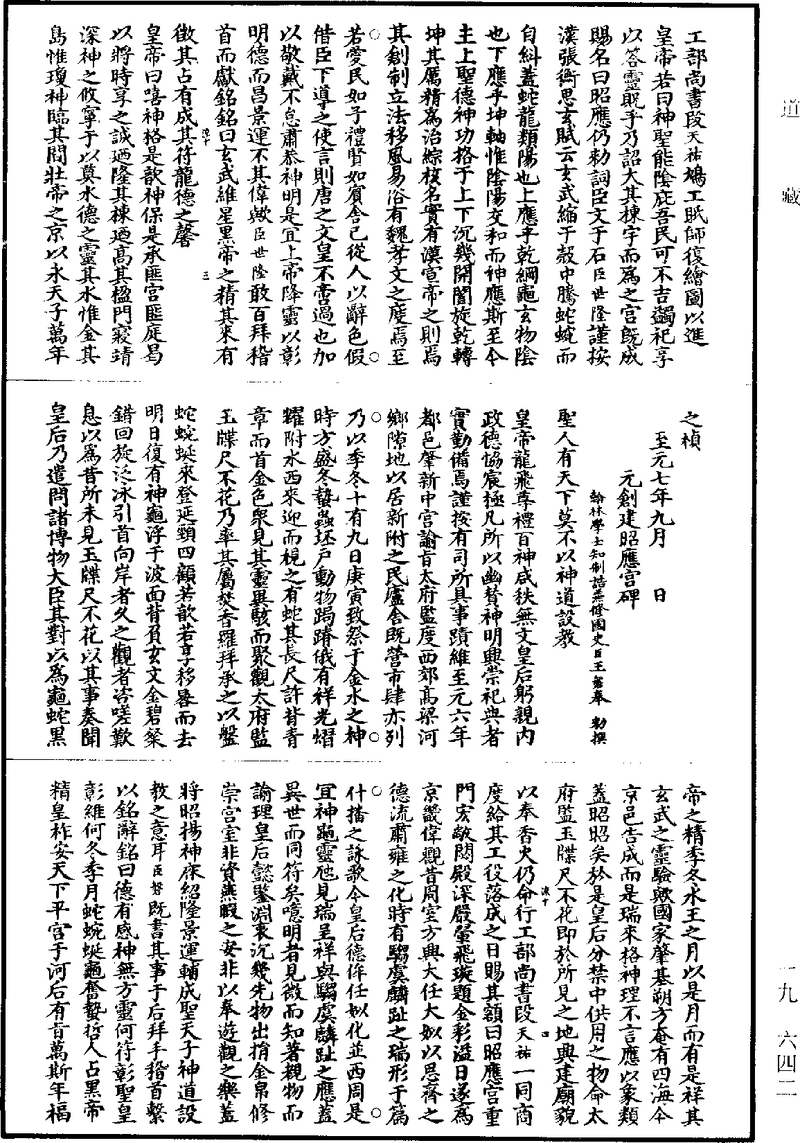 道藏
一九 六四二
工部尚書段天祐鳩工眡師復繪圖以進
皇帝若曰神聖能陰庇吾民可不吉蠲祀享
以答靈貺乎乃詔大其棟宇而為之宮旣成
賜名曰昭應仍勑詞臣文于石臣世隆謹按
漢張衡思玄賦云玄武縮于殼中騰蛇蜿而
自糾蓋蛇龍類陽也上應乎乾綱龜玄物陰
也下應乎坤軸惟陰陽交和而神應斯至今
主上聖德神功格于上下沉幾開闔旋乾轉
坤其厲精為治綜核名實有漢宣帝之則焉
其創制立法移風易俗有魏孝文之度焉至
若愛民如子禮賢如賓舍己從人以辭色假
借臣下導之使言則唐之文皇不啻過也加
以敬戴不怠肅恭神明是宜上帝降靈以彰
明德而昌景運不其偉歟臣世隆敢百拜稽
首而獻銘銘曰玄武維星黑帝之精其來有
徵其占有成其符龍德之馨
三
皇帝曰嘻神格是歆神保是承匪宮匪庭曷
以將時享之誠迺隆其棟迺高其楹門寢靖
深神之攸寧于以奠水德之靈其水惟金其
島惟瓊神臨其間壯帝之京以永天子萬年
之楨
至元七年九月 日
元創建昭應宮碑
翰林學士知制誥兼修國史臣王磐奉 勑撰
聖人有天下莫不以神道設教
皇帝龍飛尊禮百神咸秩無文皇后躬親內
政德協宸極凡所以幽贊神明興崇祀典者
實勤備焉謹按有司所具事蹟維至元六年
都邑肇新中宮諭旨太府監度西郊高梁河
鄉隙地以居新附之民廬舍既營市肆亦列
乃以季冬十有九日庚寅致祭于金水之神
時方盛冬蟄蟲坯戶動物跼蹐俄有祥光熠
耀附水西來迎而視之有蛇其長尺許背青
章而首金色眾見其靈異駭而聚觀太府監
玉牒尺不花乃率其屬焚香羅拜承之以盤
蛇蜿蜒來登延頸四顧若歆若享移晷而去
明日復有神龜浮于波面背負玄文金碧粲
錯回旋泛泳引首向岸者久之觀者咨嗟歎
息以為昔所未見玉牒尺不花以其事奏聞
皇后乃遣問諸博物大臣其對以為龜蛇黑
帝之精季冬水王之月以是月而有是祥其
玄武之靈驗歟國家肇基朔方奄有四海今
京邑告成而是瑞來格神理不言應以象類
蓋昭昭矣於是皇后分禁中供用之物命太
府監玉牒尺不花即於所見之地興建廟貌
以奉香火仍命行工部尚書段天祐一同商
四
度給其工役落成之日賜其額曰昭應宮重
門宏敞閟殿深嚴翬飛璇題金彩溢日遂為
京畿偉觀昔周室方興大任大姒以思齊之
德流肅雍之化時有騶虞麟趾之瑞形于篇
什播之詠歌今皇后德侔任姒化並西周是
宜神龜靈虵見瑞呈祥與騶虞麟趾之應蓋
異世而同符矣噫明者見微而知著觀物而
諭理皇后懿鑒淵衷沉幾先物出捐金帛修
崇宮室非資燕暇之安非以奉遊觀之樂蓋
將昭揚神庥紹隆景運輔成聖天子神道設
教之意耳臣磐既書其事于后拜手稽首繫
以銘辭銘曰德有感神無方靈何符彰聖皇
彰維何冬季月蛇蜿蜒龜奮蟄哲人占黑帝
精皇祚安天下平宮于河后有旨萬斯年福